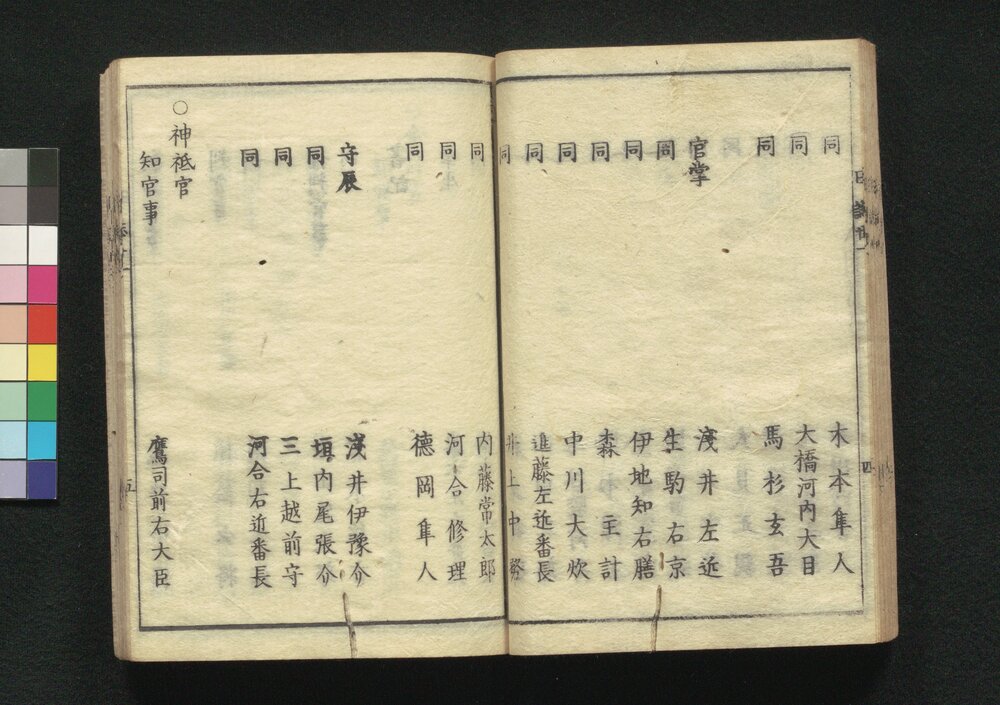 同　木本隼人
同　大橋河内大目
同　馬杉玄吾
官掌　浅井左近
同　生駒右京
同　伊地知右膳
同　森主計
同　中川大炊
同　進藤左近番長
同　井上中務
同　内藤常太郎
同　河合修理
同　德岡隼人
守辰　浅井伊豫介
同　垣内尾張介
同　三上越前守
同　河合右近番長
○神祇官
知官事　鷹司前右大臣
四
五